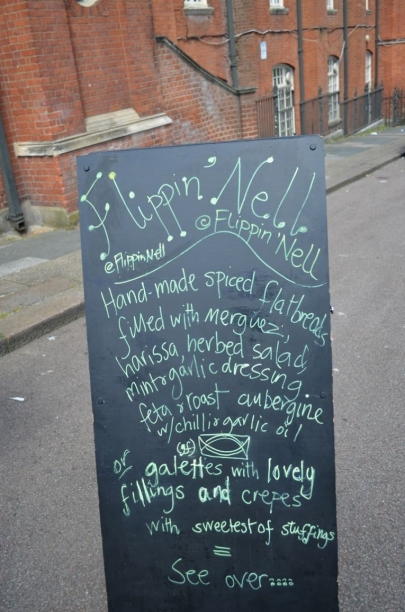 Flippin' Nell.
@Flippin'Nell
@FlippinNell
Hand-made spiced flatbreads
filled with Merguez,
harissa, herbed salad,
mint+garlic dressing
feta + roast aubergine
w/chilli+garlic oil
(gf)
or galettes with lovely
fillings and crepes
with sweetest of stuffings
=
See over::::